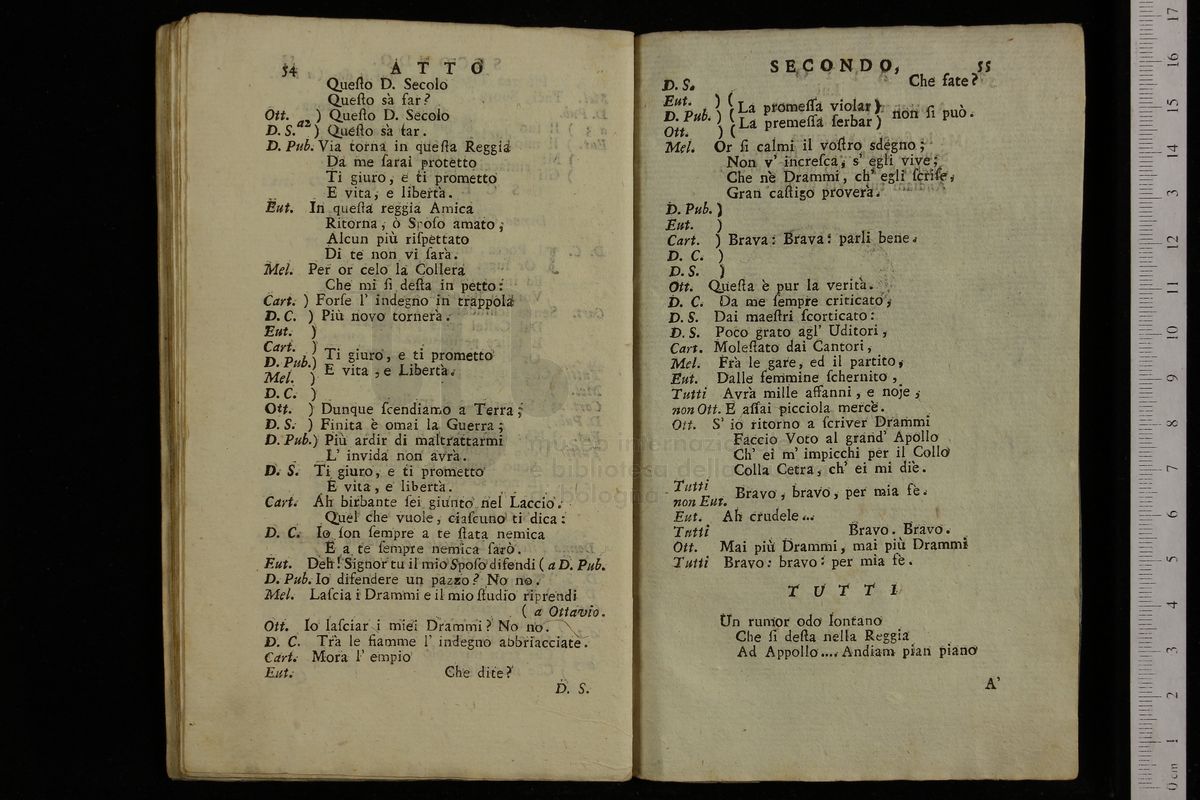 54 ATTO
Queſto D. Secolo
Queſto sà far?
Ott. ) Queſto D. Secolo
D. S. a2 ) Queſto sà far.
D. Pub. Via torna in queſta Reggia
Da me ſarai protetto
Ti giuro, e ti prometto
E vita, e libertà.
Eut. In queſta reggia Amica
Ritorna, ò Spoſo amato,
Alcun più riſpettato
Di te non vi ſarà.
Mel. Per or celo la Collera
Che mi ſi deſta in petto:
Cart. ) Forſe l' indegno in trappola
D. C. ) Più novo tornerà.
Eut. )
Cart. )
D. Pub.) Ti giuro, e ti prometto
Mel. ) E vita, e Libertà.
D. C. )
Ott. ) Dunque ſcendiamo a Terra;
D. S. ) Finita è omai la Guerra;
D. Pub.) Più ardir di maltrattarmi
L' invida non avrà.
D. S. Ti giuro, e ti prometto
E vita, e libertà.
Cart. Ah birbante ſei giunto nel Laccio.
Quel che vuole, ciaſcuno ti dica:
D. C. Io ſon ſempre a te ſtata nemica
E a te ſempre nemica ſarò.
Eut. Deh! Signor tu il mio Spoſo difendi ( a D. Pub.
D. Pub. Io difendere un pazzo? No no.
Mel. Laſcia i Drammi e il mio ſtudio riprendi
( a Ottavio.
Ott. Io laſciar i miei Drammi? No no.
D. C. Trà le fiamme l' indegno abbriacciate.
Cart. Mora l' empio
Eut. Che dite?
D. S.
SECONDO, 55
D. S. Che fate?
Eut. ) (
D. Pub. ) ( La promeſſa violar ) non ſi può.
Ott. ) ( La premeſſa ſerbar )
Mel. Or ſi calmi il voſtro sdegno;
Non v' increſca, s' egli vive;
Che nè Drammi, ch' egli ſcriſe,
Gran caſtigo proverà.
D. Pub. )
Eut. )
Cart. ) Brava: Brava: parli bene.
D. C. )
D. S. )
Ott. Queſta è pur la verità.
D. C. Da me ſempre criticato,
D. S. Dai maeſtri ſcorticato:
D. S. Poco grato agl' Uditori,
Cart. Moleſtato dai Cantori,
Mel. Frà le gare, ed il partito,
Eut. Dalle femmine ſchernito,
Tutti Avrà mille affanni, e noje,
non Ott. E aſſai picciola mercè.
Ott. S' io ritorno a ſcriver Drammi
Faccio Voto al grand' Apollo
Ch' ei m' impicchi per il Collo
Colla Cetra, ch' ei mi diè.
Tutti
non Eut. Bravo, bravo, per mia fè.
Eut. Ah crudele...
Tutti Bravo. Bravo.
Ott. Mai più Drammi, mai più Drammi
Tutti Bravo: bravo: per mia fè.
TUTTI
Un rumor odo lontano
Che ſi deſta nella Reggia
Ad Appollo.... Andiam pian piano
A'